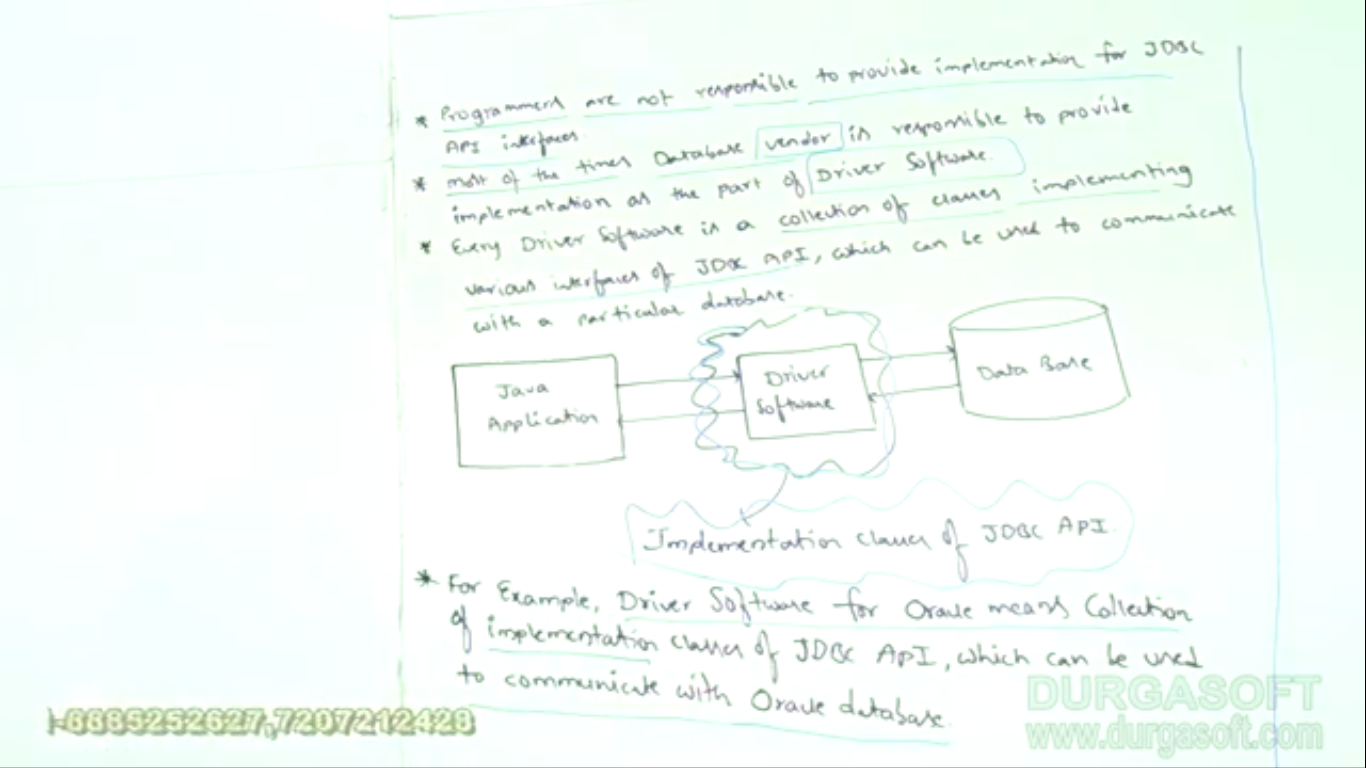 * Programmers are not responsible to provide implementation for JDBC
API interfaces.
* most of the times Database vendor is responsible to provide
implementation as the part of Driver Software.
* Every Driver Software is a collection of classes implementing
various interfaces of JDBC API, which can be used to communicate
with a particular database.
Java
Application
Driver
Software
Data Base
Implementation classes of JDBC API.
* For Example, Driver Software for Oracle means Collection
of implementation classes of JDBC API, which can be used
to communicate with Oracle database.
DURGASOFT
www.durgasoft.com
7207212428